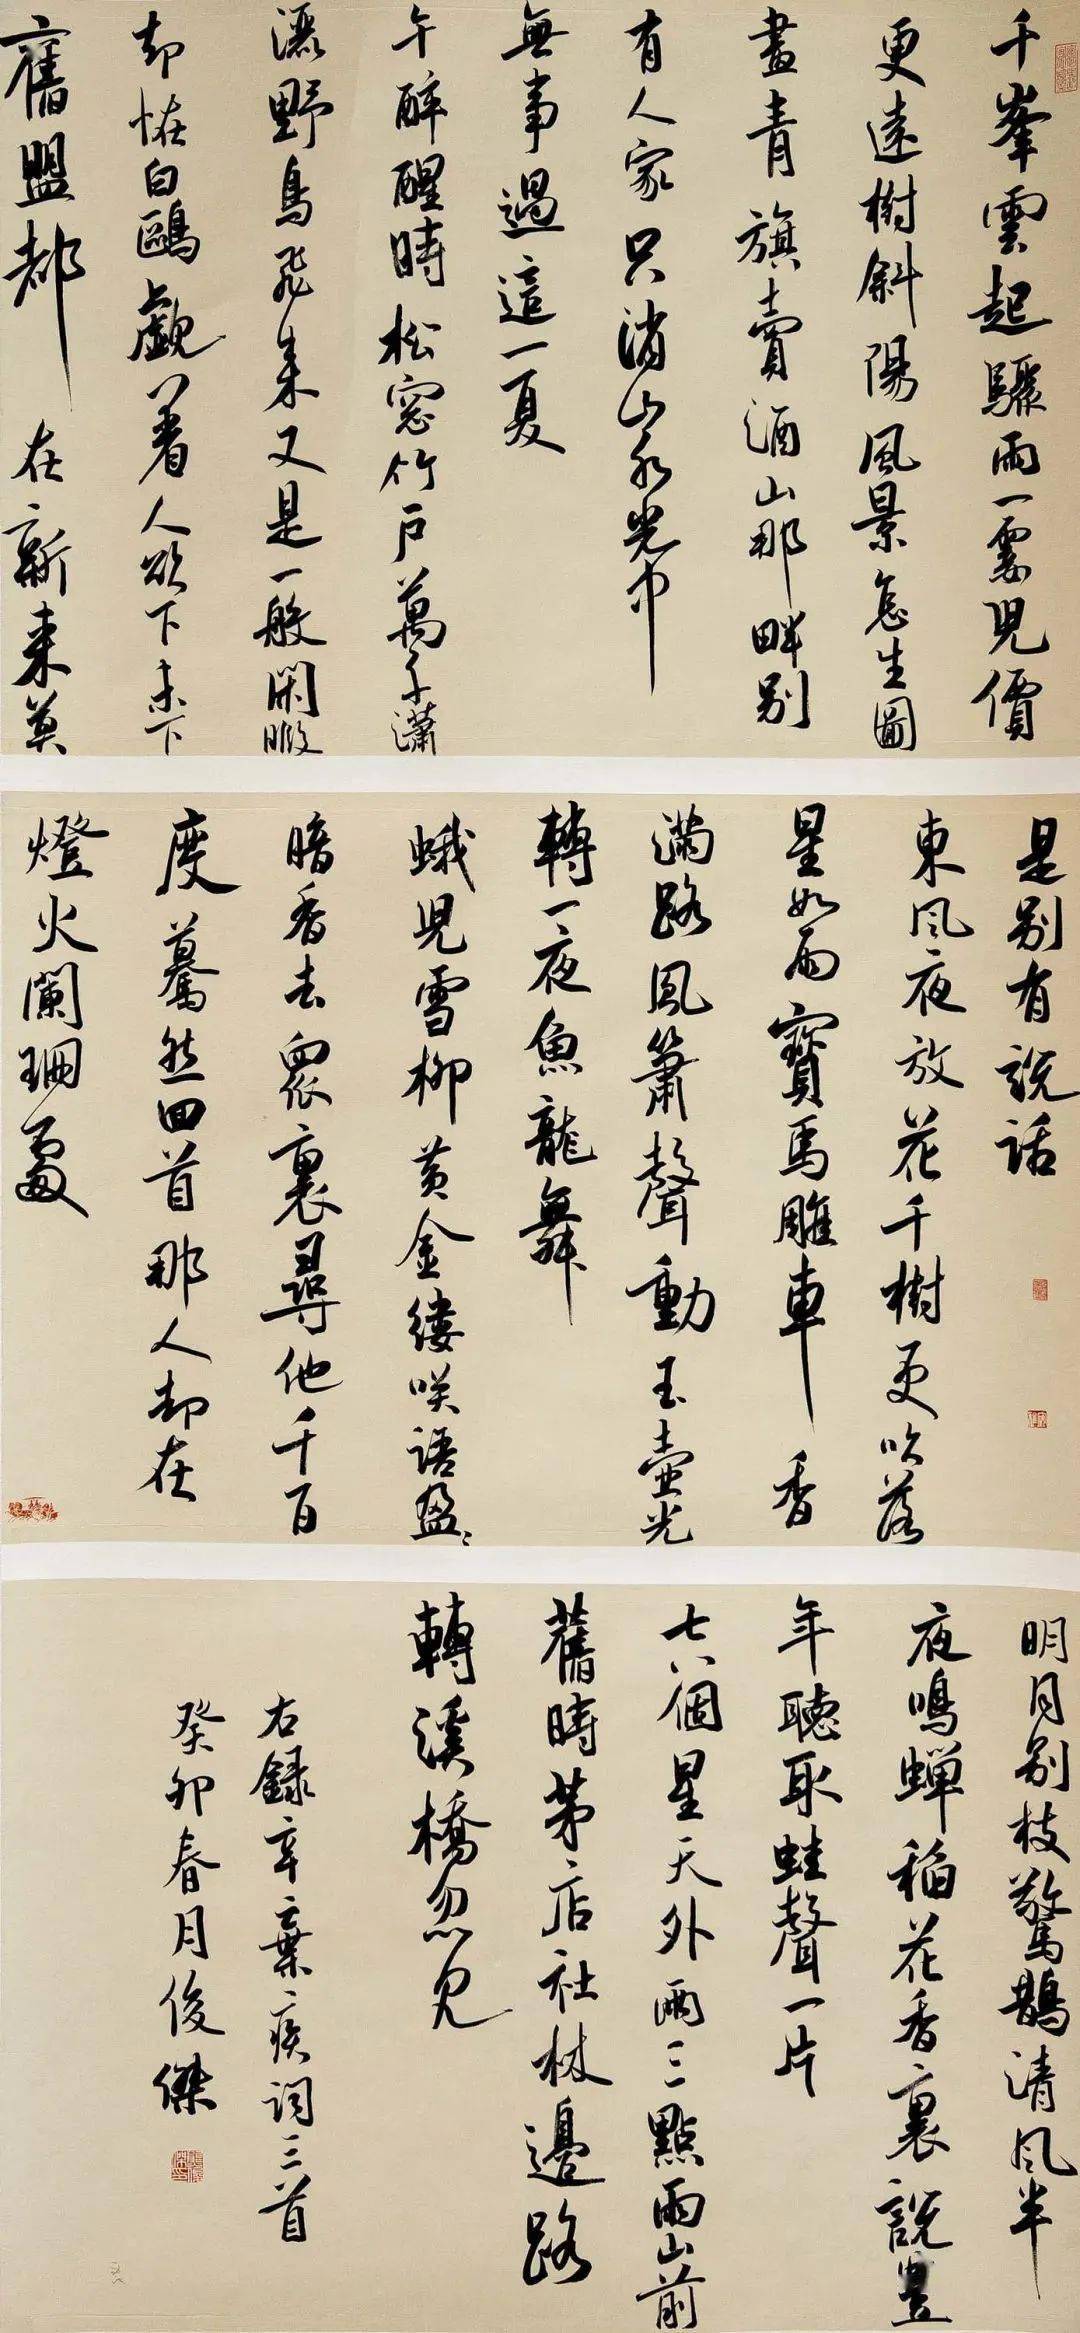 千峯雲起驟雨一霎兒價
更遠樹斜陽風景怎生圖
畫青旗賣酒山那畔别
有人家只消山水光中
無事過這一夏
午醉醒時松窓竹戶萬千瀟
灑野鳥飛來又是一般閑暇
却怪白鷗覷着人欲下未下
舊盟都在新來莫
是别有説話
東風夜放花千樹更吹落
星如雨寶馬雕車香
滿路鳳簫聲動玉壺光
轉一夜魚龍舞
蛾兒雪柳黄金縷咲語盈〻
暗香去衆裏尋他千百
度驀然回首那人却在
燈火闌珊處
明月别枝驚鵲清風半
夜鳴蟬稻花香裏說豊
年聽取蛙聲一片
七八個星天外兩三點雨山前
舊時茅店社林邊路
轉溪橋忽見
右錄辛棄疾詞三首
癸卯春月俊傑